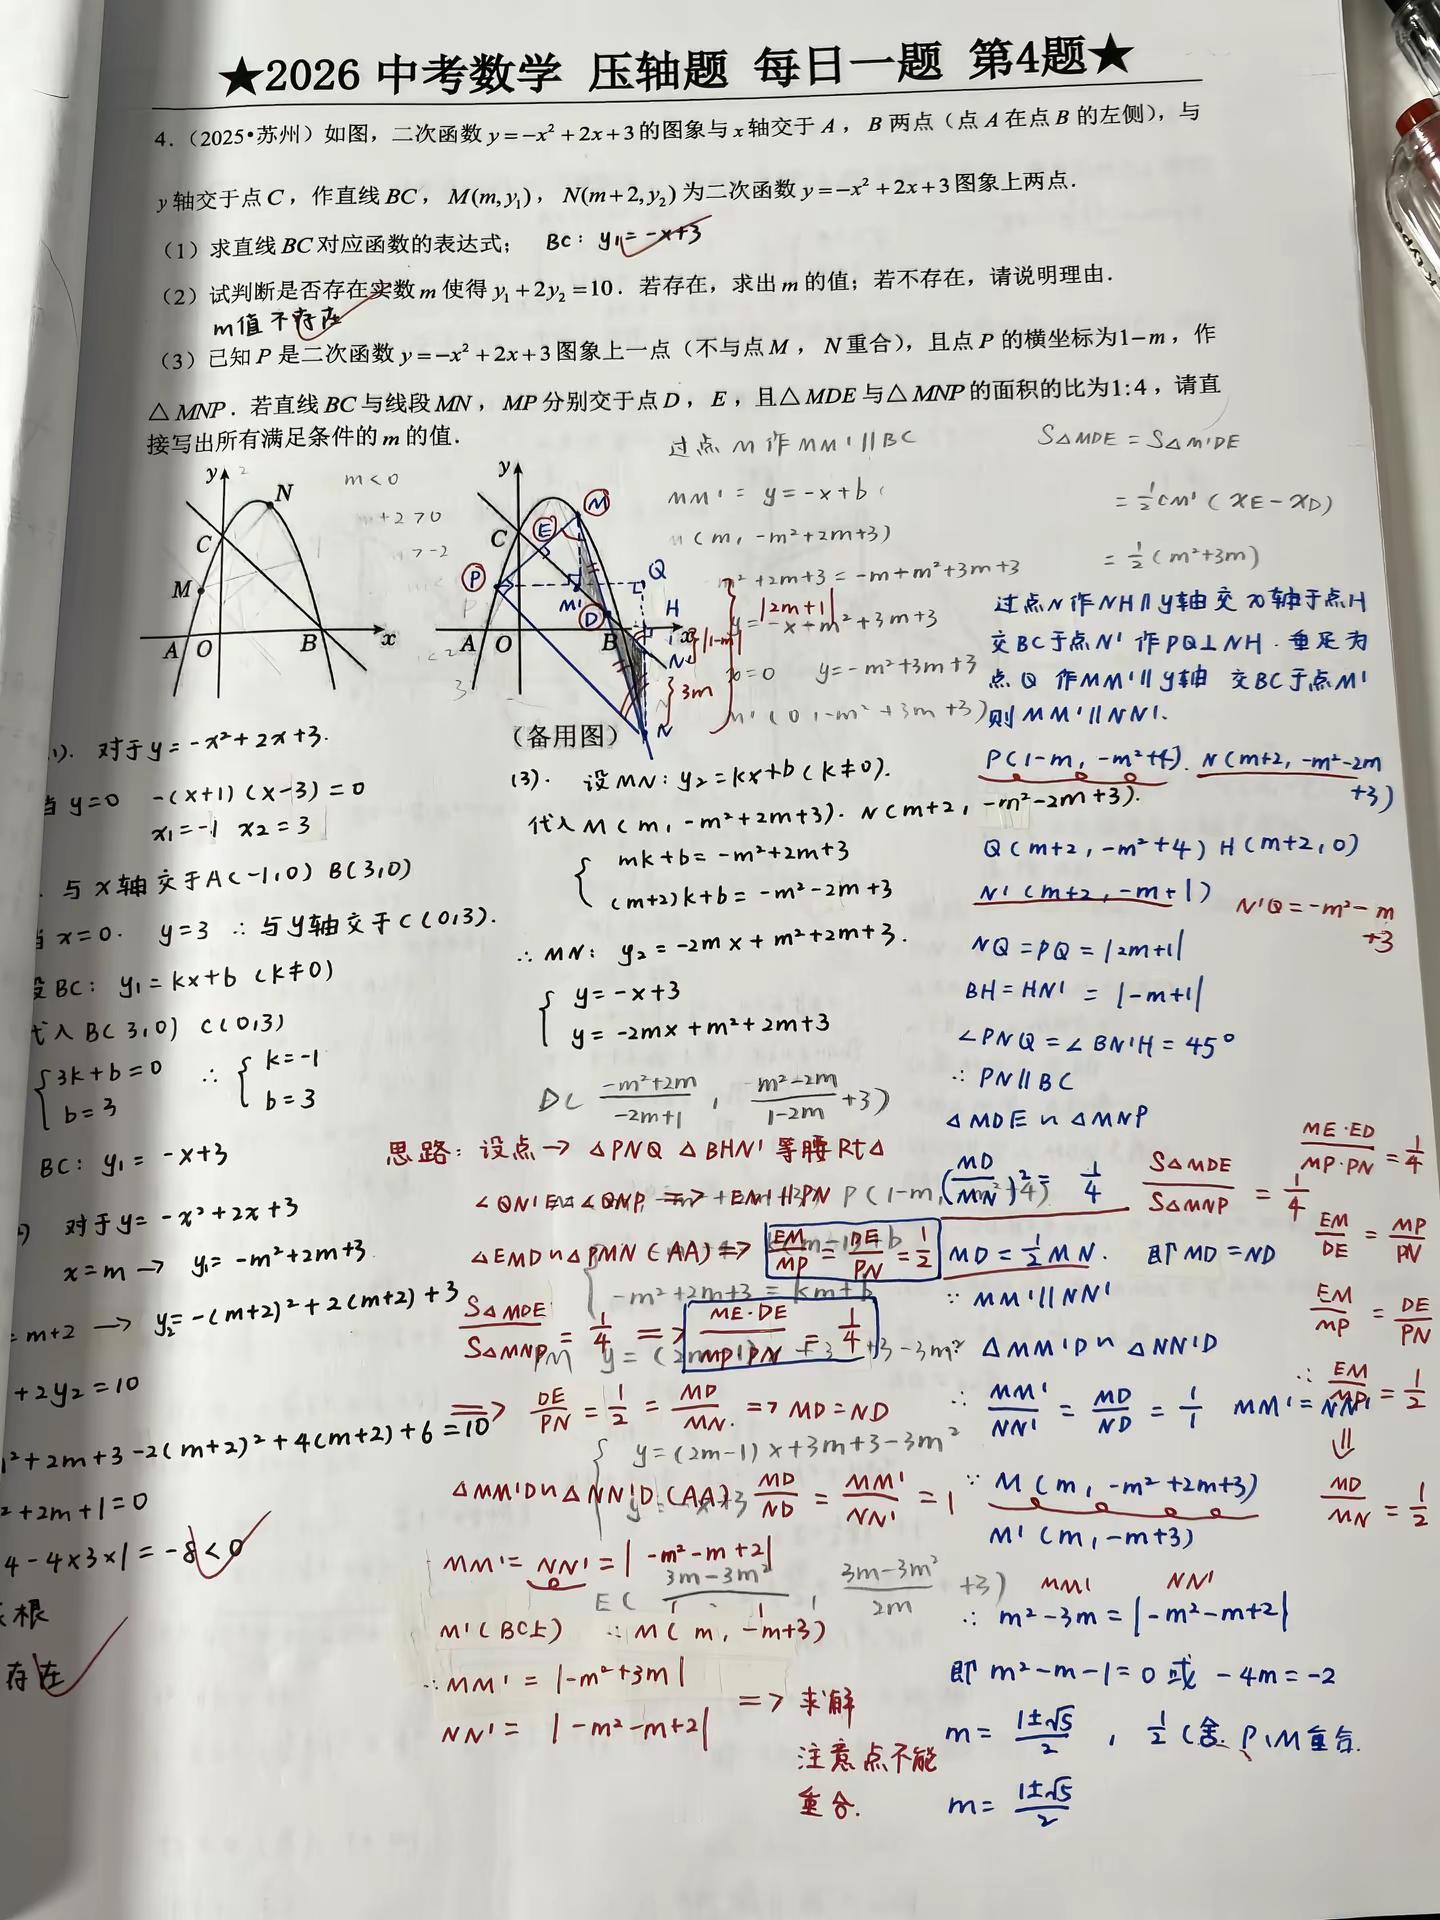 ★2026 中考数学 压轴题 每日一题 第4题★
4.（2025•苏州）如图，二次函数y=-x²+2x+3的图象与x轴交于A，B两点（点A在点B的左侧），与
y轴交于点C，作直线BC，M(m,y₁)，N(m+2,y₂)为二次函数y=-x²+2x+3图象上两点．
（1）求直线BC对应函数的表达式； BC: y₁=-x+3
（2）试判断是否存在实数m使得y₁+2y₂=10．若存在，求出m的值；若不存在，请说明理由．
m值不存在
（3）已知P是二次函数y=-x²+2x+3图象上一点（不与点M，N重合），且点P的横坐标为1-m，作
△MNP．若直线BC与线段MN，MP分别交于点D，E，且△MDE与△MNP的面积的比为1:4，请直
接写出所有满足条件的m的值．
过点M作MM'∥BC
MM': y=-x+b
(m, -m²+2m+3)
+2m+3=-m+m²+3m+3
y=-x-m²+3m+3
x=0 y=-m²+3m+3
M'(0,-m²+3m+3)
S△MDE=S△M'DE
=½CM'(xE-xD)
=½(m²+3m)
m<0
m+2>0
>-2
y
N
C
M
A
O
B
x
y
M
C
E
P
Q
M'
D
H
A
O
B
x
N'
N
|2m+1|
|1-m|
3m
（备用图）
过点N作NH∥y轴交x轴于点H
交BC于点N' 作PQ⊥NH．垂足为
点Q 作MM'∥y轴 交BC于点M'
则MM'∥NN'.
P(1-m, -m²+4). N(m+2, -m²-2m
+3)
Q(m+2, -m²+4) H(m+2,0)
N'(m+2, -m+1)
N'Q=-m²-m
+3
NQ=PQ=|2m+1|
BH=HN'=|-m+1|
∠PNQ=∠BN'H=45°
∴PN∥BC
△MDE∽△MNP
(MD/MN)²=1/4
S△MDE/S△MNP=1/4
MD=½MN. 即MD=ND
∵MM'∥NN'
△MM'D∽△NN'D
∴MM'/NN'=MD/ND=1/1 MM'=NN'
∵M(m, -m²+2m+3)
M'(m, -m+3)
MM' NN'
∴m²-3m=|-m²-m+2|
即m²-m-1=0或-4m=-2
m=(1±√5)/2，1/2(舍. P、M重合.
m=(1±√5)/2
ME·ED/MP·PN=1/4
EM/DE=MP/PN
EM/MP=DE/PN
∴EM/MP=1/2
⇓
MD/MN=1/2
1). 对于y=-x²+2x+3.
当y=0 -(x+1)(x-3)=0
x₁=-1 x₂=3
与x轴交于A(-1,0) B(3,0)
当x=0. y=3 ∴与y轴交于C(0,3).
设BC: y₁=kx+b (k≠0)
代入B(3,0) C(0,3)
{3k+b=0 ∴ {k=-1
b=3 b=3
BC: y₁=-x+3
) 对于y=-x²+2x+3
x=m→ y₁=-m²+2m+3
=m+2→ y₂=-(m+2)²+2(m+2)+3
+2y₂=10
²+2m+3-2(m+2)²+4(m+2)+6=10
²+2m+1=0
4-4×3×1=-8<0
根
存在
(3). 设MN: y₂=kx+b(k≠0).
代入M(m, -m²+2m+3). N(m+2, -m²-2m+3).
{mk+b=-m²+2m+3
(m+2)k+b=-m²-2m+3
∴MN: y₂=-2mx+m²+2m+3.
{y=-x+3
y=-2mx+m²+2m+3
D((-m²+2m)/(-2m+1), (m²-2m)/(1-2m)+3)
思路：设点→△PNQ △BHN'等腰Rt△
∠QN'E=∠QNP => EN'∥PN
P(1-m, -m²+4)
△EMD∽△PMN(AA) => EM/MP=DE/PN=1/2
-m²+2m+3=km+b
S△MDE/S△MNP=1/4 => ME·DE/MP·PN=1/4
PM y=(2m-1)x+3m+3-3m²
=> DE/PN=1/2=MD/MN. => MD=ND
{y=(2m-1)x+3m+3-3m²
y=-x+3
△MM'D∽△NN'D(AA) MD/ND=MM'/NN'=1
MM'=NN'=|-m²-m+2|
E((3m-3m²)/2m, (3m-3m²)/2m+3)
M'(BC上) ∴M(m, -m+3)
∴MM'=|-m²+3m|
NN'=|-m²-m+2|
=> 求解
注意点不能
重合.